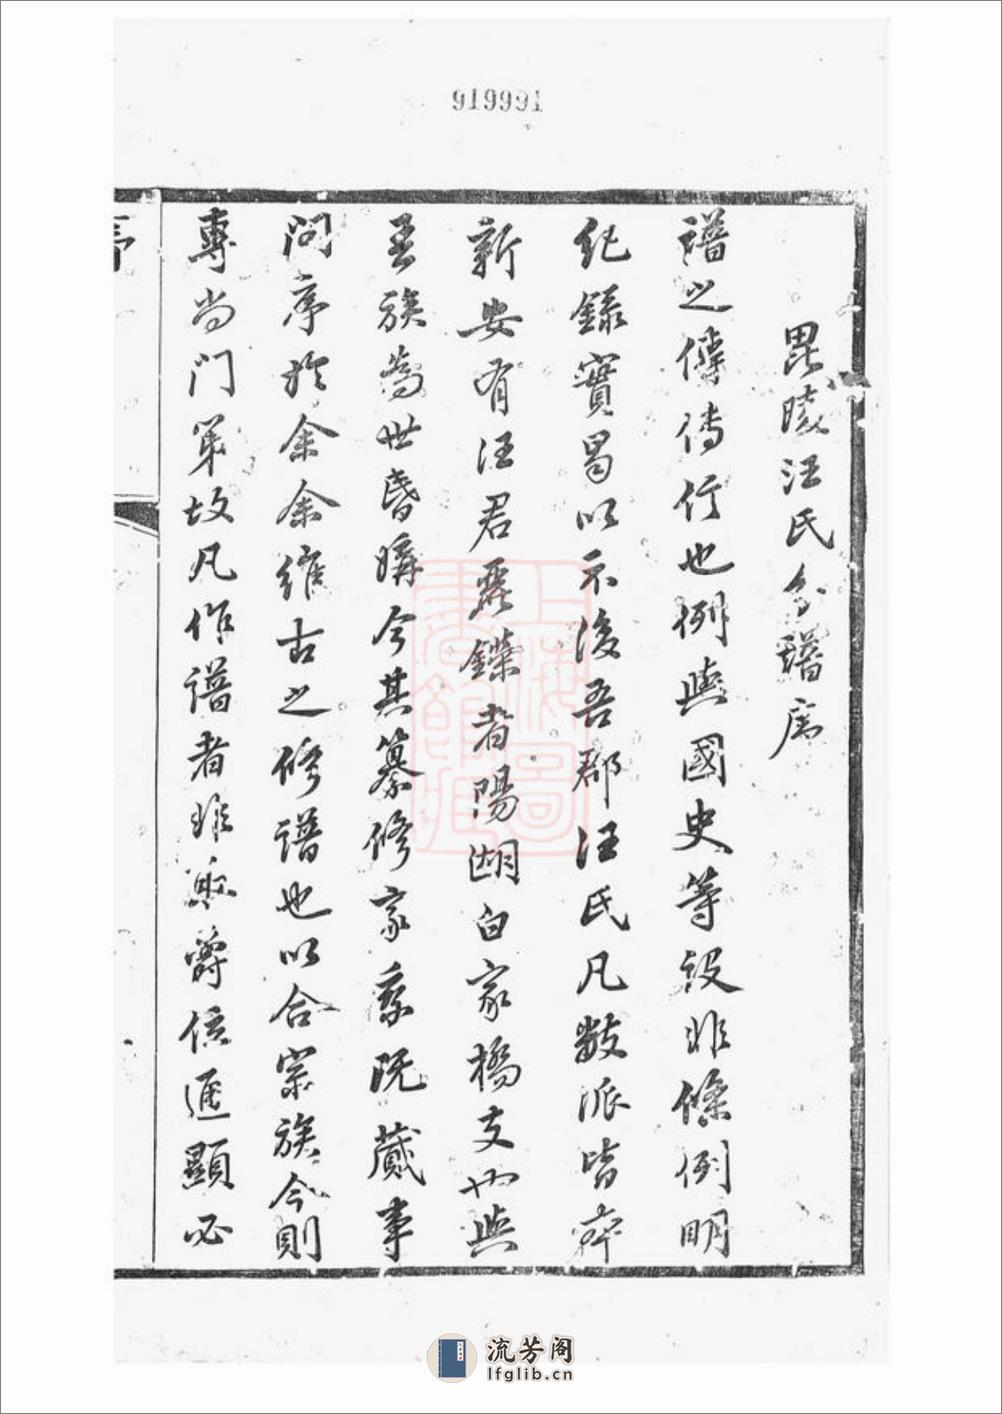 919991
毘陵汪氏分譜序
譜之傳傳行也例與國史等設非條例明
紀錄實曷以示後吾郡汪氏凡數派皆本
新安有汪君麗鑅者陽湖白家橋支也與
吾族為世昏媾今其纂修家乘既蕆事
問序於余余維古之修譜也以合宗族今則
專尚門第故凡作譜者非興爵位通顯必
序
上海圖書館藏
流芳阁
lfglib.cn